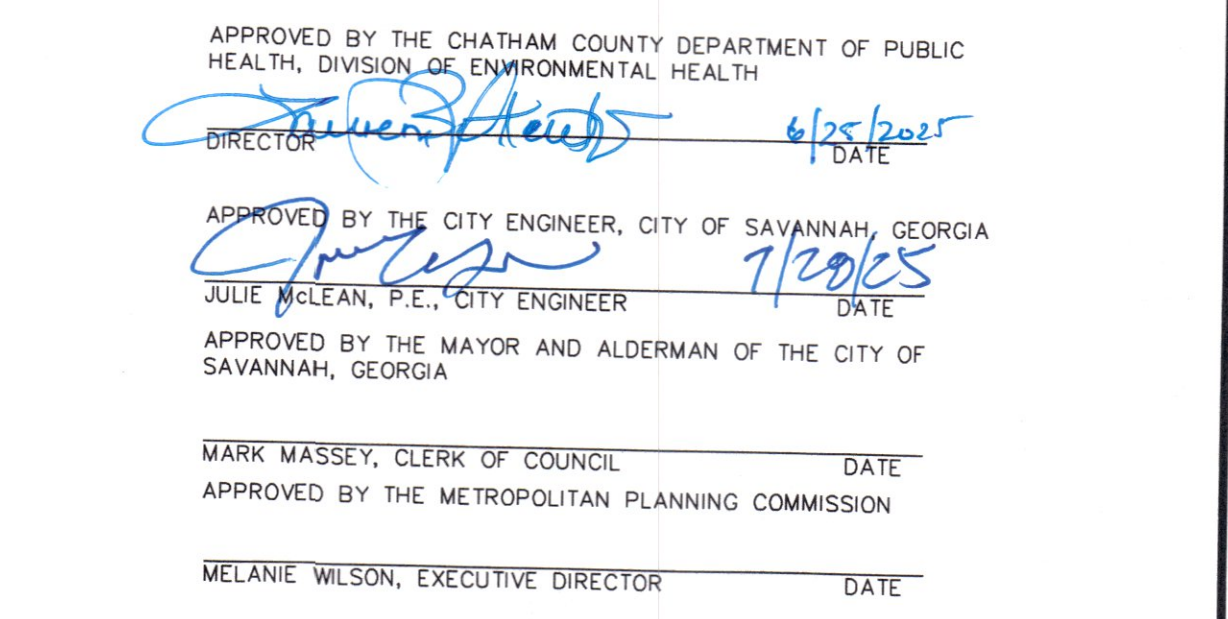 APPROVED BY THE CHATHAM COUNTY DEPARTMENT OF PUBLIC
HEALTH, DIVISION OF ENVIRONMENTAL HEALTH
6/25/2025
DIRECTOR DATE
APPROVED BY THE CITY ENGINEER, CITY OF SAVANNAH, GEORGIA
7/20/25
JULIE McLEAN, P.E., CITY ENGINEER DATE
APPROVED BY THE MAYOR AND ALDERMAN OF THE CITY OF
SAVANNAH, GEORGIA
MARK MASSEY, CLERK OF COUNCIL DATE
APPROVED BY THE METROPOLITAN PLANNING COMMISSION
MELANIE WILSON, EXECUTIVE DIRECTOR DATE